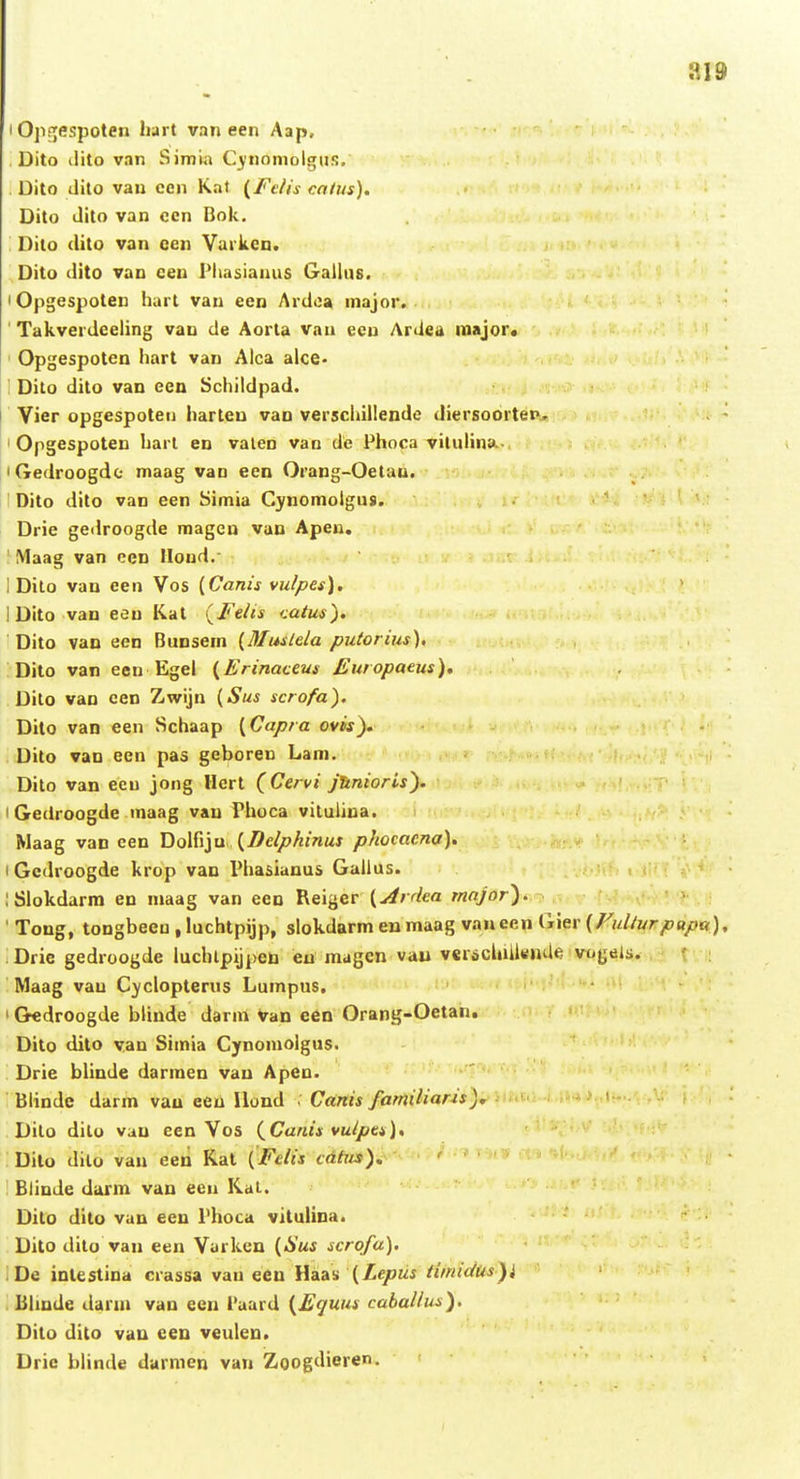 319
Opgespoten hart van een Aap,
Dito dito van Simia Cynomolgus.
Dito dito van een Kat (Felis catus).
Dito dito van een Bok.
Dito dito van een Varken.
Dito dito van een Phasianus Gallus.
Opgespoten hart van een Ardea major.
Takverdeeling van de Aorta van een Ardea major.
Opgespoten hart van Alca alce.
Dito dito van een Schildpad.
Vier opgespoten harten van verschillende diersoorten.
Opgespoten hart en vaten van de Phoca vitulina.
Gedroogde maag van een Orang-Oetan.
Dito dito van een Simia Cynomolgus.
Drie gedroogde magen van Apen.
Maag van een Hond.
Dito van een Vos (Canis vulpes).
Dito van een Kat (Felis catus).
Dito van een Bunsem (Mustela putorius).
Dito van een Egel (Erinaceus Europaeus).
Dito van een Zwijn (Sus scrofa).
Dito van een Schaap (Capra ovis).
Dito van een pas geboren Lam.
Dito van een jong Hert (Cervi junioris).
Gedroogde maag van Phoca vitulina.
Maag van een Dolfijn (Delphinus phocaena).
Gedroogde krop van Phasianus Gallus.
Slokdarm en maag van een Reiger (Ardea major).
Tong, tongbeen, luchtpijp, slokdarm en maag van een Gier (Vultur papa),
Drie gedroogde luchtpijpen en magen van verschillende vogels.
Maag van Cyclopterus Lumpus.
Gedroogde blinde darm van een Orang-Oetan.
Dito dito van Simia Cynomolgus.
Drie blinde darmen van Apen.
Blinde darm van een Hond Canis familiaris).
Dito dito van een Vos (Canis vulpes).
Dito dito van een Kat (Felis catus).
Blinde darm van een Kat.
Dito dito van een Phoca vitulina.
Dito dito van een Varken (Sus scrofa).
De intestina crassa van een Haas (Lepus timidus);
Blinde darm van een Paard (Equus caballus).
Dito dito van een veulen.
Drie blinde darmen van Zoogdieren.